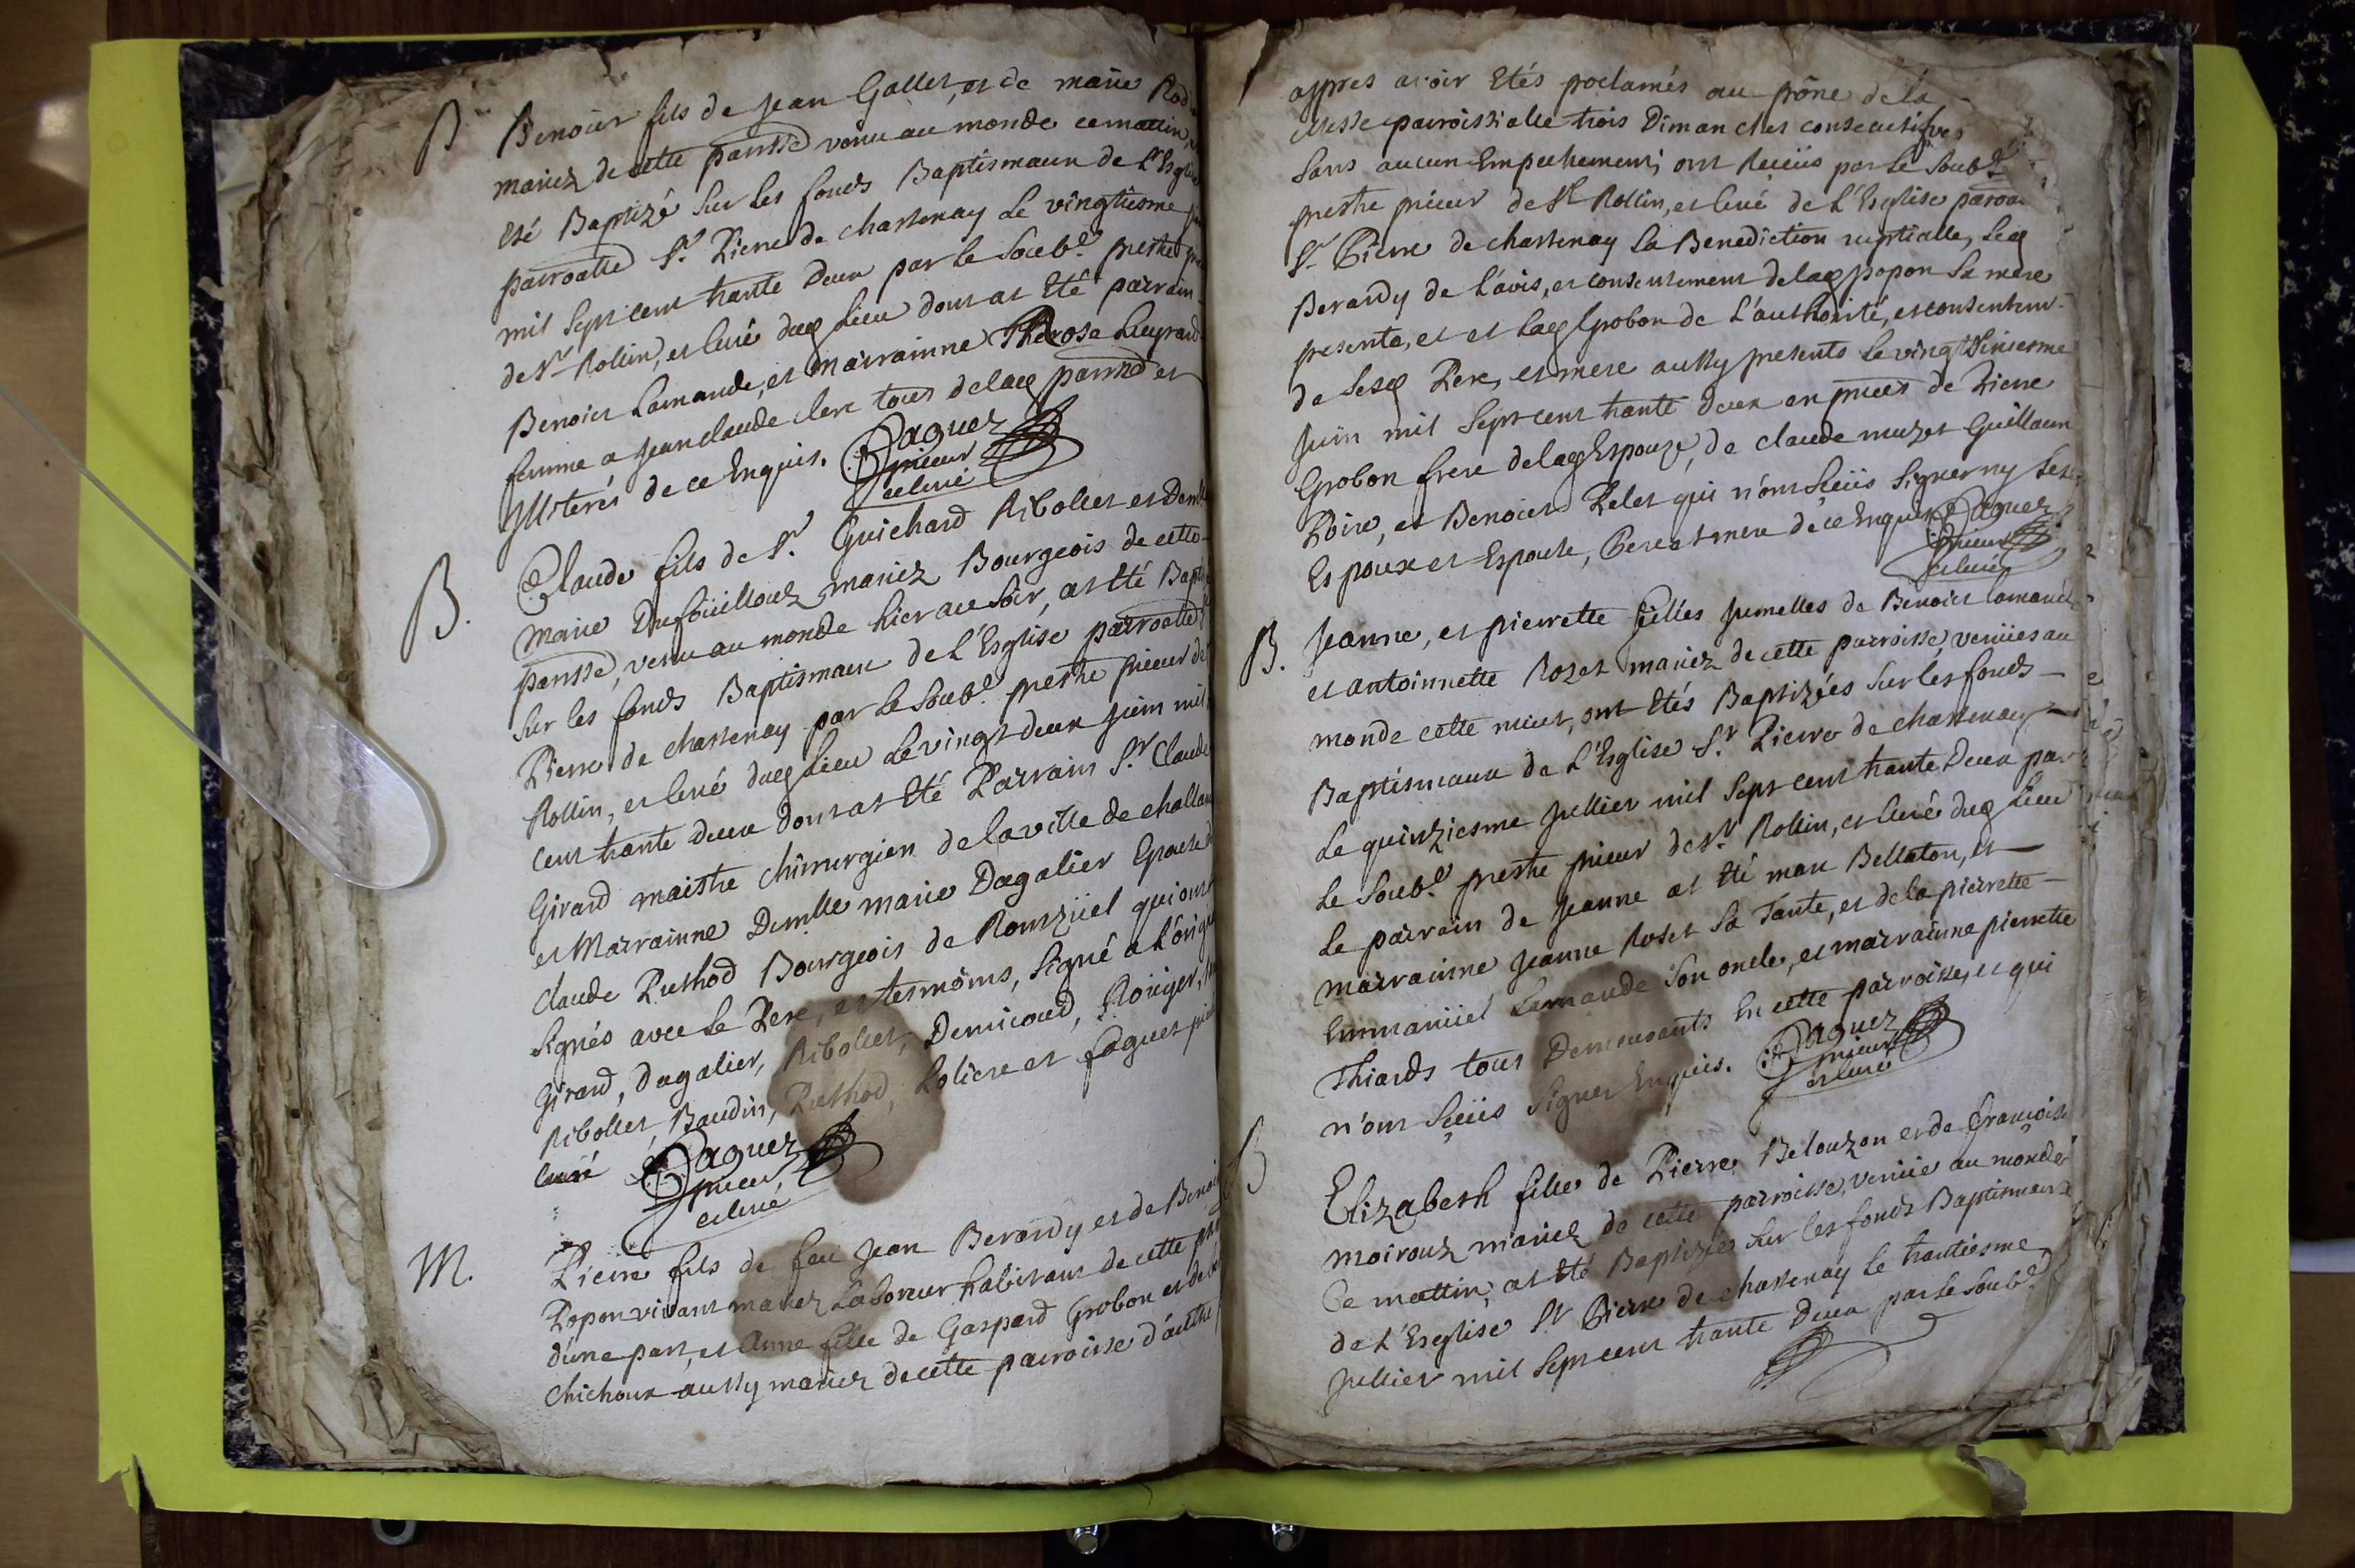 B Benoist fils de Jean Gallet, et de marie Rod
mariez de cette parrsse venu au monde ce matin,
été Baptizé sur les fonds Baptismaux de l'Eglise
parroalle St. Pierre de chastenay le vingtiesme
mil sept cent trante deux par le soubé. prestre
de St Rollin, et curé dud lieu dont at été parrain
Benoist Lamande, et marrainne Therese
femme a Jean claude clerc tous de lad parrsse et
Illiterés de ce Enquis. Paquez
prieur
et curé
B. Claude fils de Sr. Guichard Ribollet et Demlle
marie Dufoüilloux mariez Bourgeois de cette
parrsse, venu au monde hier au soir, at été Bapti
sur les fonds Baptismaux de l'Esglise parroalle
Pierre de chastenay par le soubé. prestre prieur de
Rollin, et curé dud lieu le vingt deux juin mil
cent trante deux dont at été Parrain Sr. Claude
Girard maistre chirurgien de la ville de challam
et Marrainne Demlle marie Dagalier Epouse d
claude Ruthod Bourgeois de Romziiel qui ont
signés avec le Pere, et tesmoins, signé a l'orig
Girard, Dagalier, Ribollet, Demicoud, Roüyer,
Ribollet, Baudin, Ruthod, Loliere et paquet
curé Paquez
prieur
et curé
M. Pierre fils de feu Jean Berardy et de Benoi
Popon vivant mariez Laboreur habitant de cette
d'une part, et Anne fille de Gaspard Grobon et de
chichoux aussy mariez de cette parroisse d'autre
appres avoir Etés proclamés au prône de la
Messe parroissialle trois Dimanches consecutifves
sans aucun Empechement, ont Receüs par le soubé
prestre prieur de St Rollin, et curé de L'Esglise parroa
St Pierre de chastenay la Benediction nuptialle, led
Berardy de l'avis, et consentement de lad popon sa mere
presente, et et lad Grobon de l'authorité, et consentem.
de sesd Pere, et mere aussy presents le vingt
Juin mil sept cent trante deux en pnces de Pierre
Grobon frere de lad Espouze, de claude muzet Guillaum
Poire, et Benoist Pelet qui n'ont sceüs signer ny lesd
Espoux et Espouse, Pere et mere de ce Enquis Paquez
prieur
et curé
B. Jeanne, et pierrette filles Jumelles de Benoist lamand
et antoinnette Rozet mariez de cette parroisse, venües au
monde cette nuict, ont Etés Baptizées sur les fonds
Baptismaux de L'Esglise St. Pierre de chastenay
le quinziesme Juillet mil sept cent trante deux par
le soubé. prestre prieur de St. Rollin, et curé dud lieu
le parrain de Jeanne at été marc Bellaton, et
marrainne Jeanne Roset sa Tante, et de la pierrette
Emmaniiel Lamande son oncle, et marrainne pierrette
Thiards tous Demeurants En cette parroisse, et qui
n'ont sceüs signer Enquis. Paquez
prieur
et curé
B Elizabeth fille de Pierre Belouzon et de françoise
moiroux mariez de cette parroisse, venüe au monde
ce mattin, at été Baptizée sur les fonds Baptismaux
de L'Eseglise St Pierre de chastenay le trantiesme
Juillet mil sept cent trante deux par le soubé.